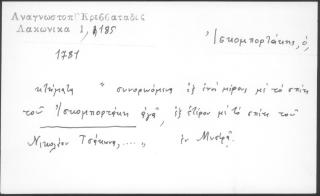 Αναγνωστοπ Κρεββαταδες
Λακωνικα 1, 185
Ἰσκομπορτάκης, ὁ,
1781
κτήματα " συνορκώμενα ἐξ ἑνὸς μέρους μὲ τὸ σπίτι
τοῦ Ἰσκομπορτάκη ἀγᾶ, ἐξ ἑτέρου μὲ τὸ σπίτι τοῦ
Νικολάου Τσάκωνα, ....., ἐν Μυσθρᾷ"